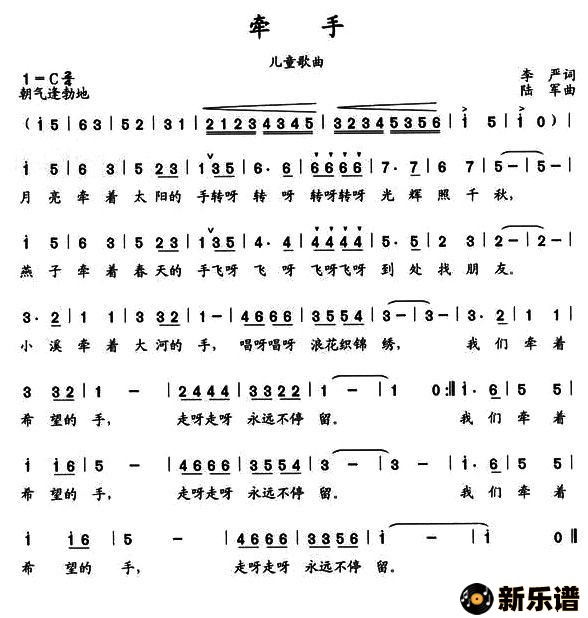 牵手
儿童歌曲
1=C 2/4
李严词
朝气逢勃地
陆军曲
(i 5 | 6 3 | 5 2 | 3 1 | 2123 4345 | 3234 5356 | i 5 | i 0) |
i 5 | 6 3 | 5 23 | i 35 | 6· 6 | 6666 | 7· 7 | 6 7 | 5— | 5— |
月亮牵着太阳的手转呀转呀转呀转呀光辉照千秋,
i 5 | 6 3 | 5 23 | i 35 | 4· 4 | 4444 | 5· 5 | 2 3 | 2— | 2— |
燕子牵着春天的手飞呀飞呀飞呀飞呀到处找朋友。
3· 2 | 1 1 | 3 32 | 1— | 4666 | 3554 | 3— | 3— | 3· 2 | 1 1 |
小溪牵着大河的手,唱呀唱呀浪花织锦绣,我们牵着
3 32 | 1 — | 2444 | 3322 | 1— | 1 0 :| i· 6 | 5 5 |
希望的手,走呀走呀永远不停留。我们牵着
i i6 | 5 — | 4666 | 3554 | 3— | 3 — | i· 6 | 5 5 |
希望的手,走呀走呀永远不停留。我们牵着
i i6 | 5 — | 4666 | 3356 | i — | i 0 ||
希望的手,走呀走呀永远不停留。
新乐谱